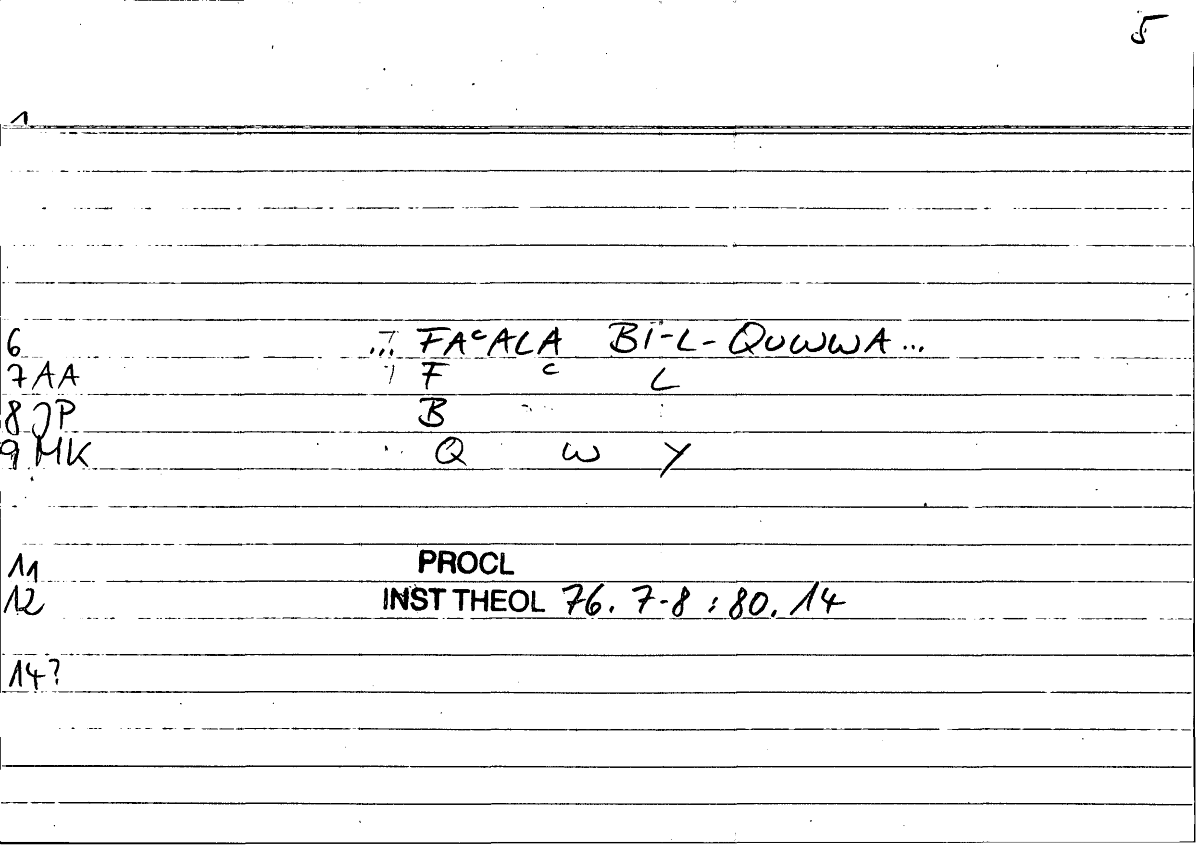 5
1
6 ... FAᶜALA Bi-L-QUWWA ...
7 AA F ᶜ L
8 JP B
9 MK Q W Y
11 PROCL
12 INST THEOL 76. 7-8 : 80. 14
14?